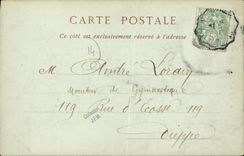 CARTE POSTALE
Ce côté est exclusivement réservé à l'adresse
14
M André
Membre de Gymnastique
119 Rue d'Ecosse 119
Dieppe